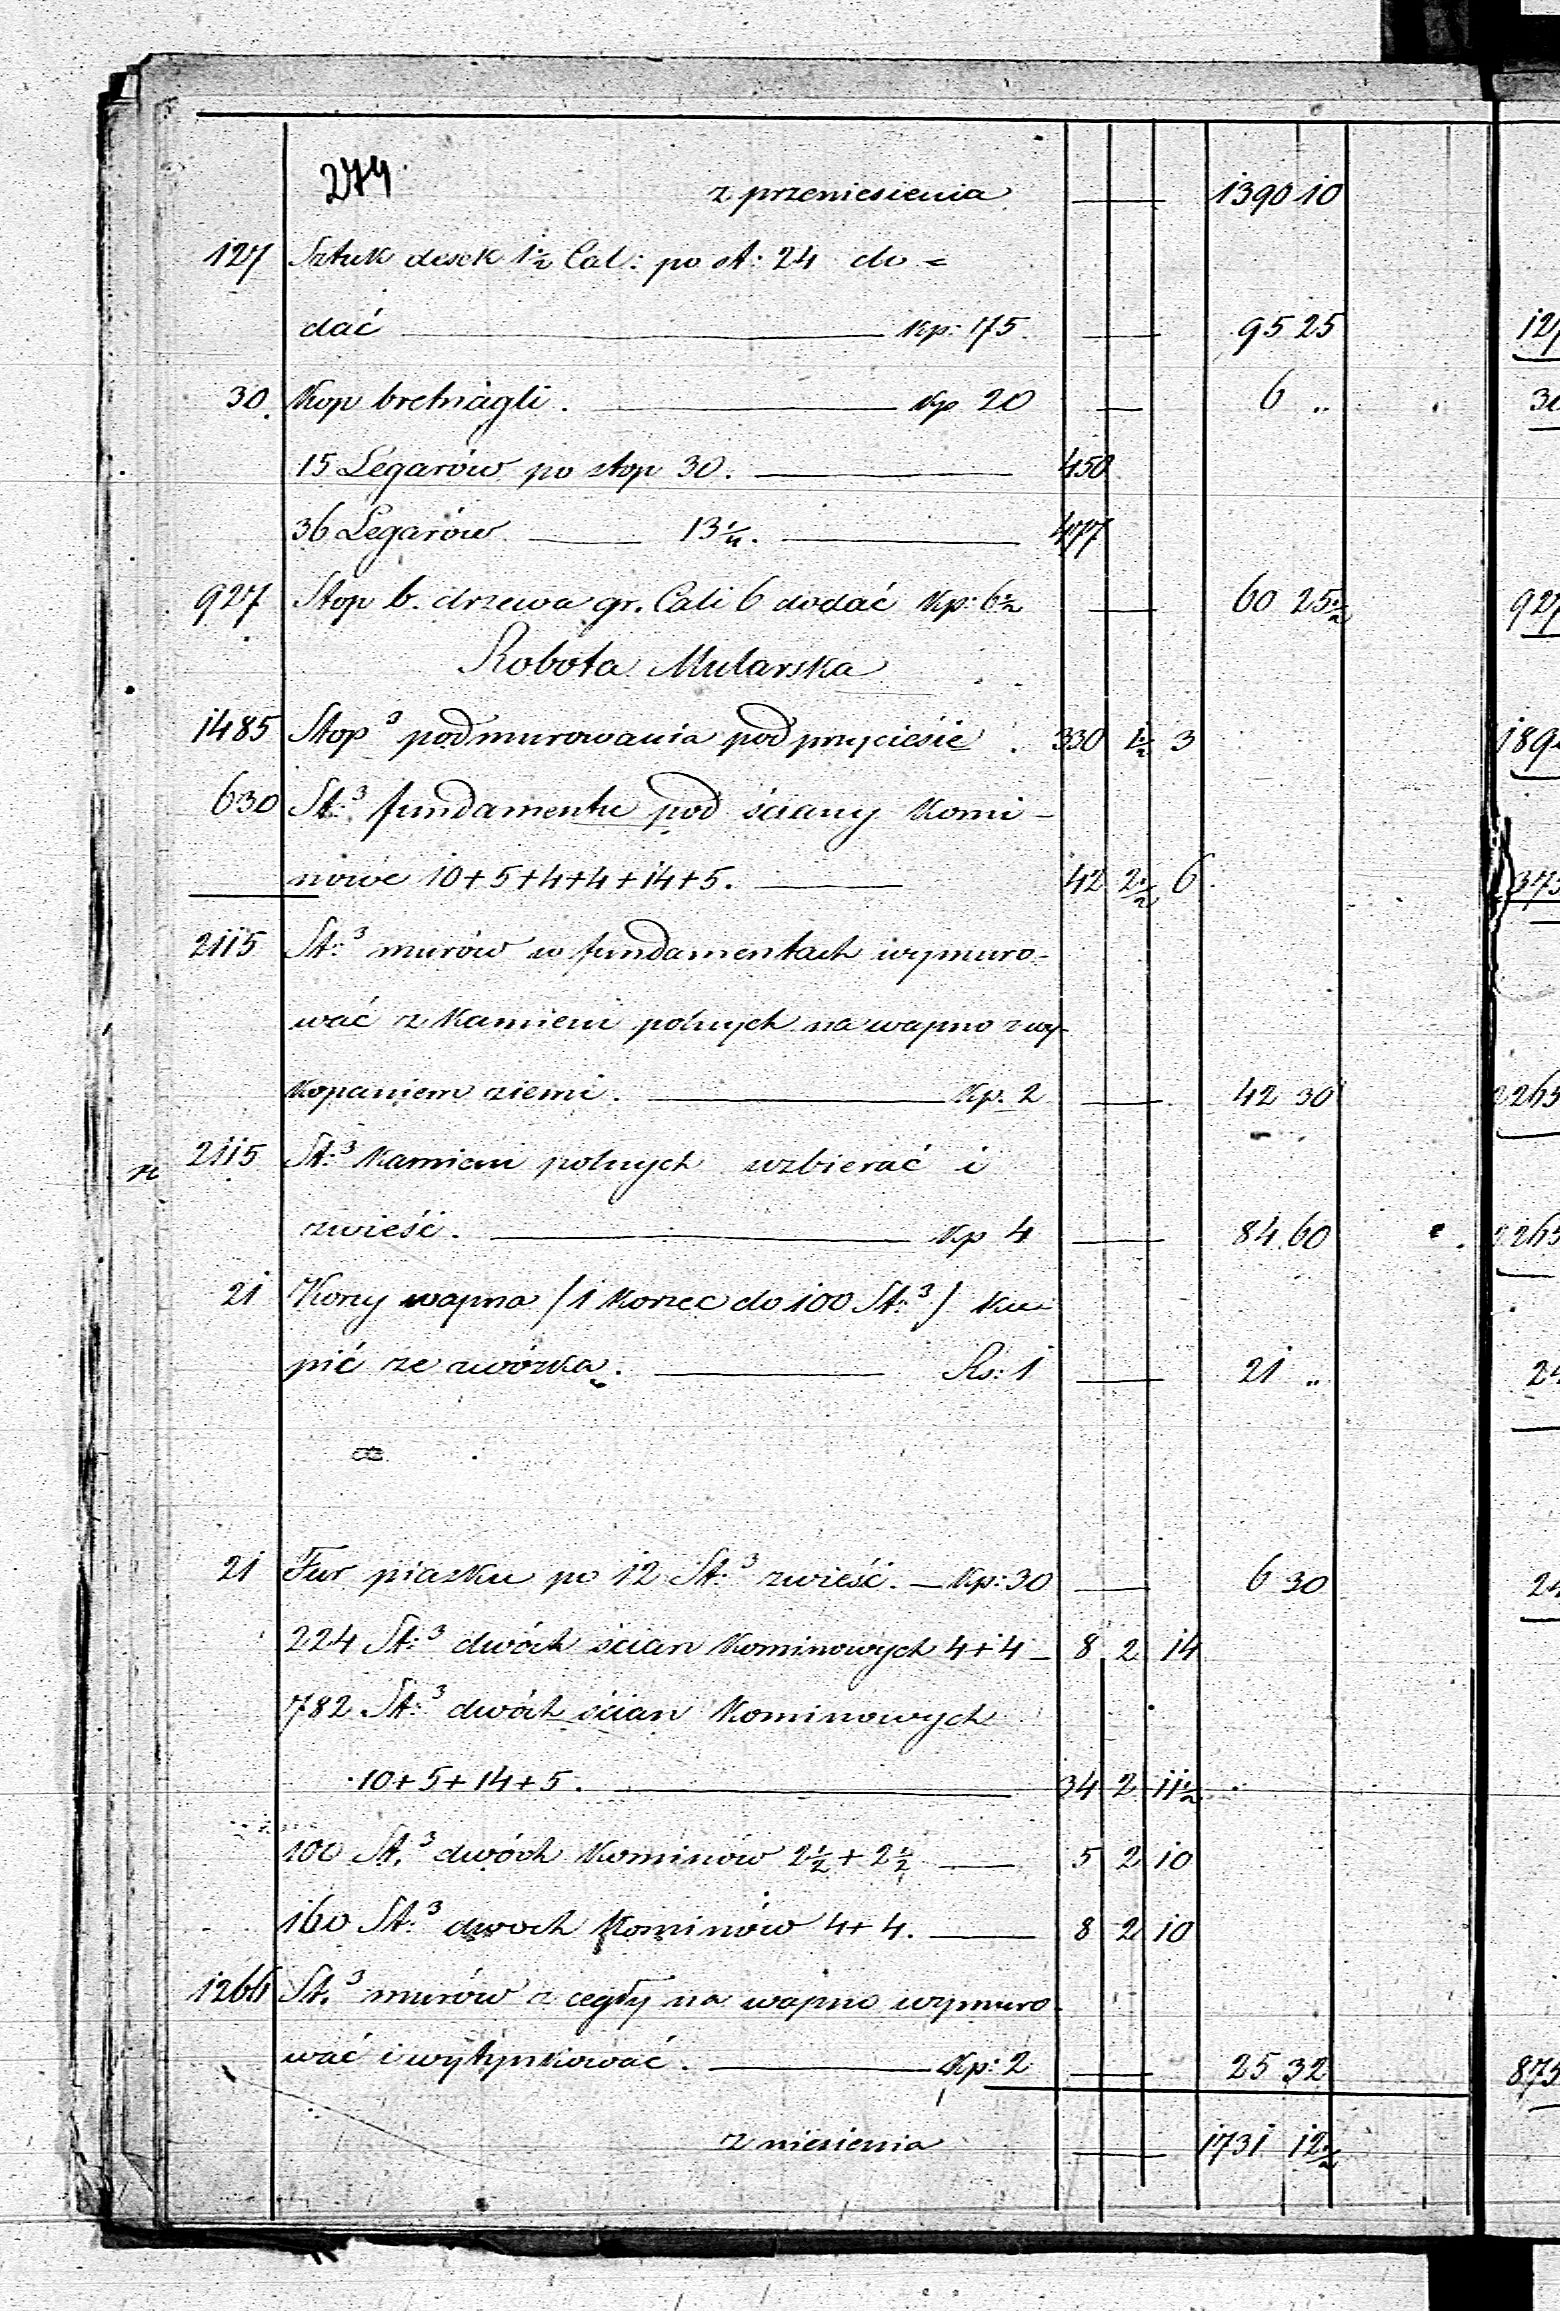 274
z przeniesienia — 1390 10
127 Sztuk desek 1½ Cal: po st: 24 do=
dać — Kp: 175. — 95 25
30. Kop bretnagli. — Kp 20 — 6 „
15 Legarów po stop 30. — 450
36 Legarów — 13¼. — 477
927 Stop b. drzewa gr. Cali 6 dodać Kp: 6½ — 60 25½
Robota Mularska
1485 Stop³ podmurowania pod przyciesie . 330 1½ 3
630 St:³ fundamentu pod ściany Komi-
nowe 10+5+4+4+14+5. — 42 2½ 6
2115 St:³ murów w fundamentach wymuro-
wać z Kamieni polnych na wapno z wy-
kopaniem ziemi. — Kp. 2 — 42 30
2115 St:³ Kamieni polnych uzbierać i
zwieść. — Kp 4 — 84 60
21 Korcy wapna /1 Korzec do 100 St:³/ Ku-
pić ze zwózką. — Rs: 1 — 21 „
21 Fur piasku po 12 St:³ zwieść. — Kp: 30 — 6 30
224 St:³ dwóch ścian Kominowych 4+4 — 8 2 14
782 St:³ dwóch ścian Kominowych
10+5+14+5. — 34 2 11½
100 St:³ dwóch Kominów 2½+2½ — 5 2 10
160 St:³ dwoch Kominów 4+4. — 8 2 10
1266 St:³ murów z cegły na wapno wymuro-
wać i wytynkować. — Kp: 2 — 25 32
z niesienia — 1731 12½